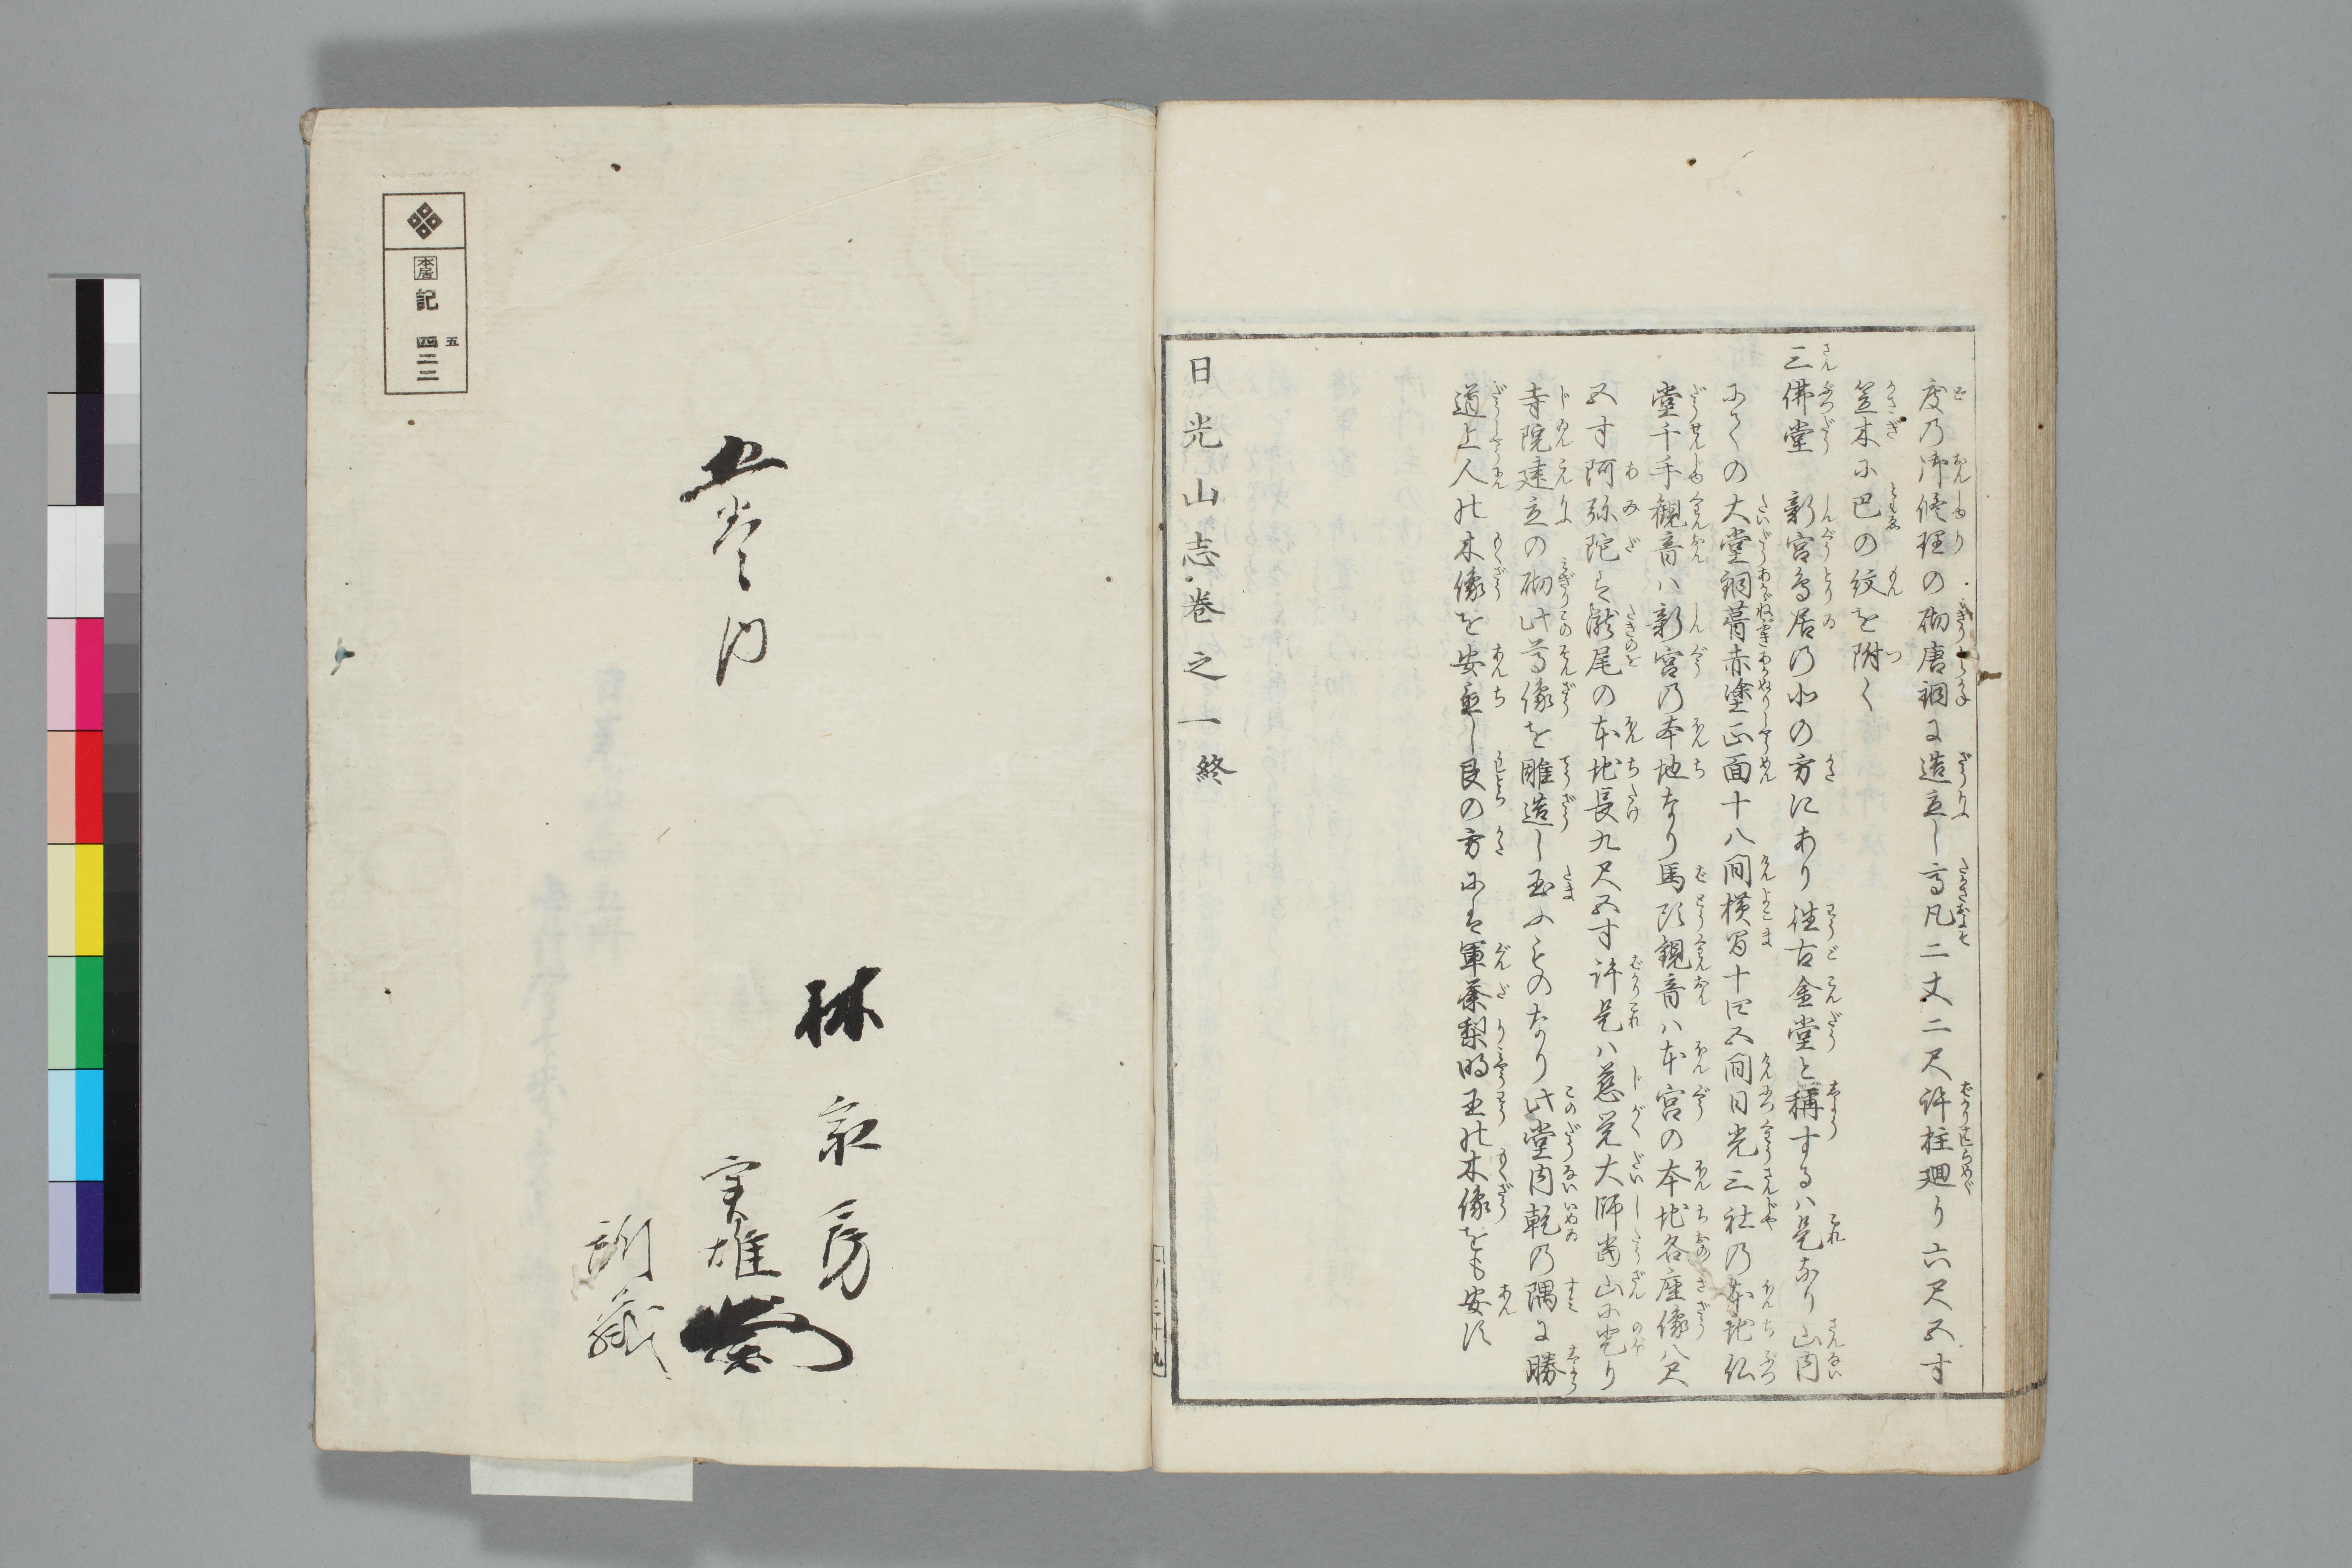 度の御修理の砌唐銅に造立し高凡二丈二尺許柱廻り六尺五寸
笠木に巴の紋を附く
三佛堂　新宮鳥居の北の方にあり往古金堂と稱するハ是なり山内
の大堂銅葺赤塗正面十八間横間十四五間日光三社の本地仏
堂千手観音ハ新宮の本地なり馬頭観音ハ本宮の本地各座像八尺
五寸阿弥陀は瀧尾の本地長九尺五寸許是ハ慈覚大師当山に登り
寺院建立の砌此尊像を雕造し玉ふものなり此堂内乾の隅に勝
道上人の木像を安置し艮の方には軍荼梨明王の木像をも安す
日光山志巻之一終
一ノ三十九
五巻内
林家房
実雄
蔵
本居
記
五
四三三